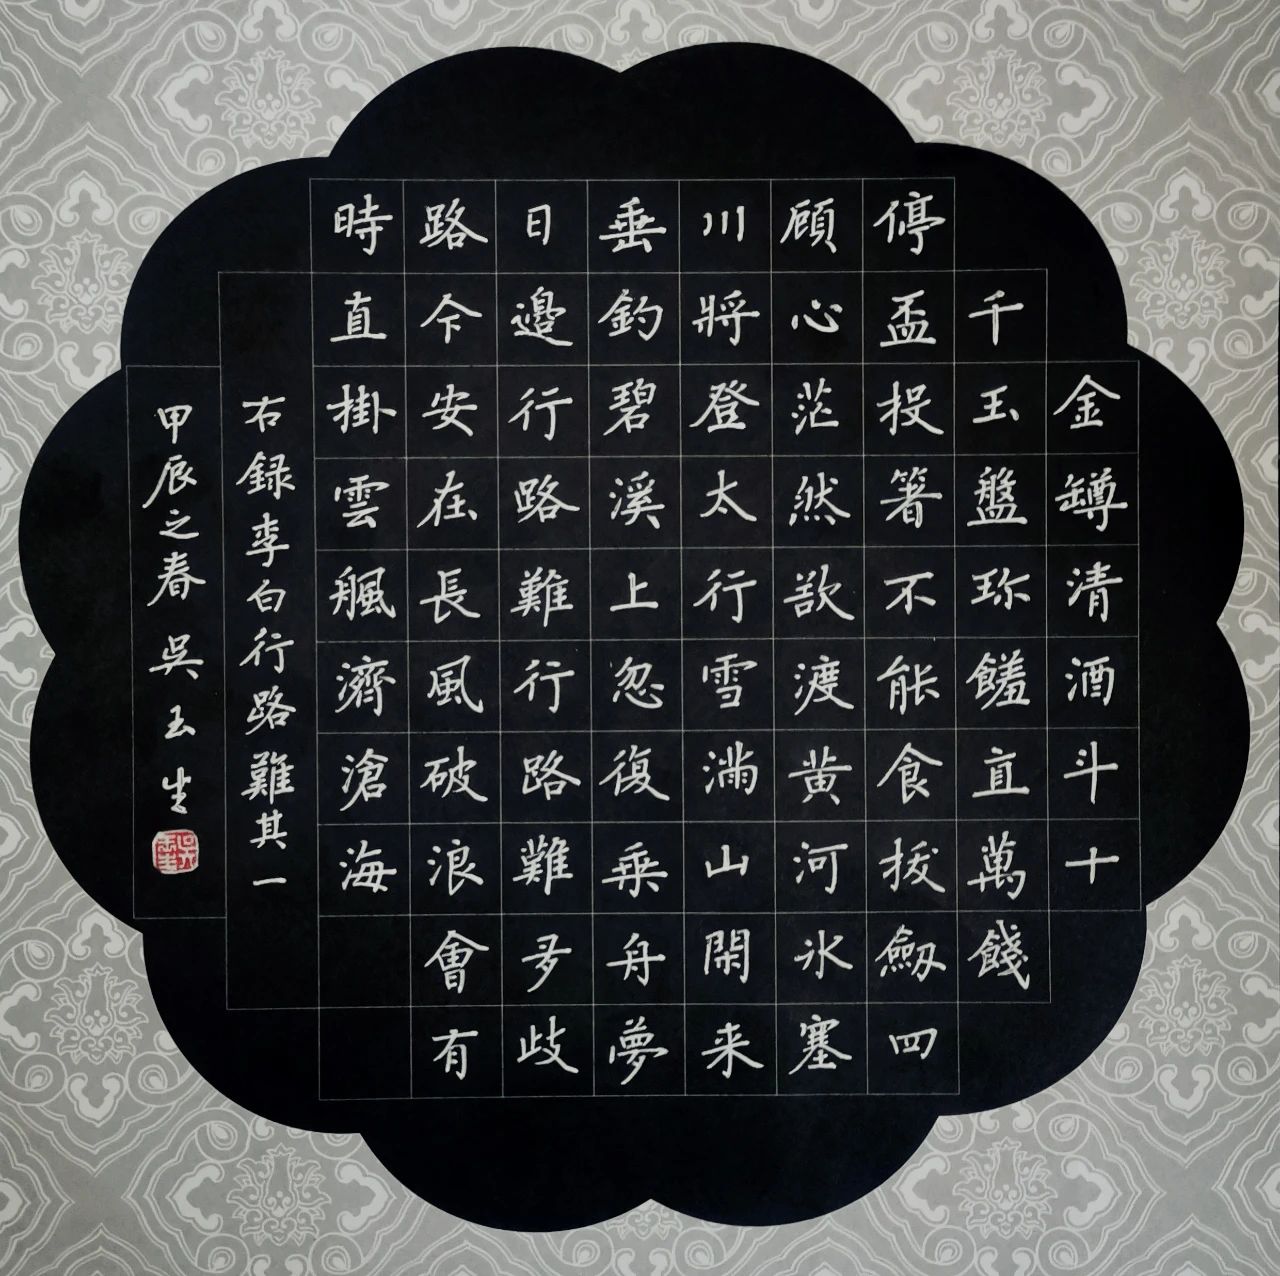 金罇清酒斗十
千玉盤珎饈直萬餞
停盃投箸不能食拔劔四
顧心茫然欲渡黄河氷塞
川將登太行雪滿山閑来
垂釣碧溪上忽復乘舟夢
日邊行路難行路難多歧
路今安在長風破浪會有
時直掛雲颿濟滄海
右録李白行路難其一
甲辰之春 吳玉生